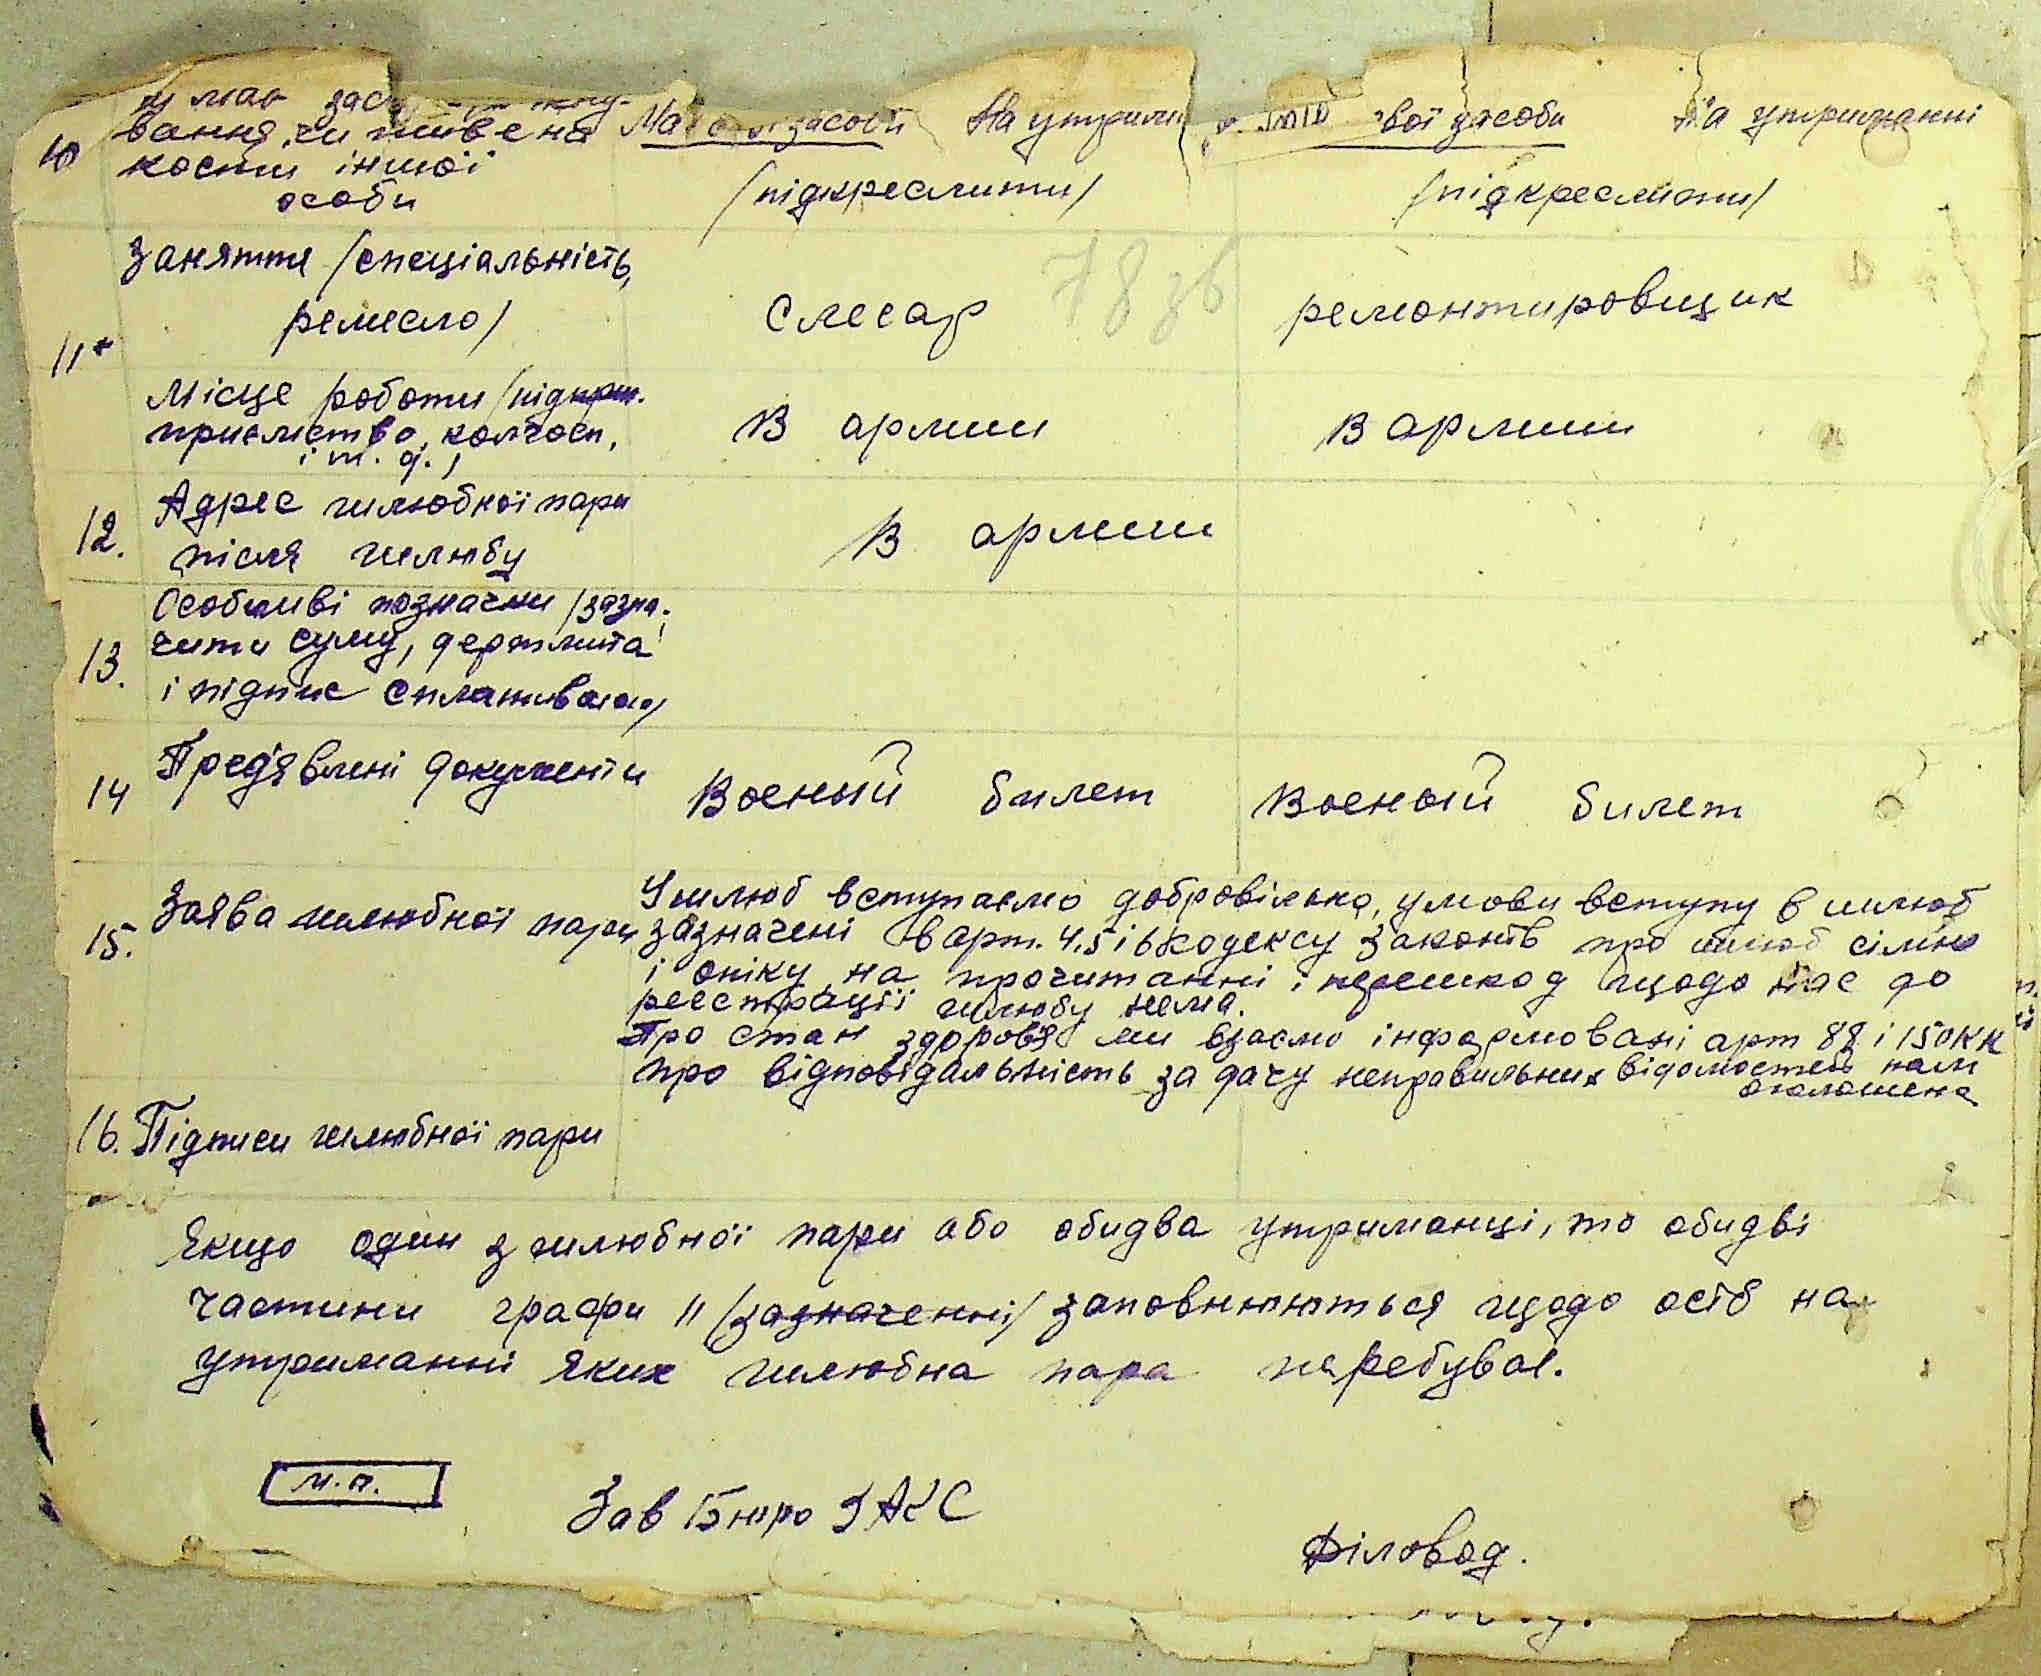 10
ч має
вання, чи живе на
кошти іншої
особи
засоби
На утрим
свої засоби
На утриманні
/підкреслити/
/підкреслити/
Заняття /спеціальність,
ремесло/
слесар
78 зв
ремонтировщик
11
Місце роботи /підпри.
приємство, колгосп,
і т. д.,
В армии
В армии
12.
Адрес шлюбної пари
після шлюбу
В армии
13.
Особливі позначки /зазна.
чити суму, держмита
і підпис
14
Пред'явлені документи
Военый билет
Военый билет
15.
Заява шлюбної пари
У шлюб вступаємо добровільно, умови вступу в шлюб
зазначені в арт. 4, 5 і 6 кодексу законів про шлюб сім'ю
і опіку, на прочитанні і перешкод щодо нас до
реєстрації шлюбу нема.
Про стан здоров'я ми взаємо інформовані арт 88 і 150 КК
про відповідальність за дачу неправильних відомостей нам
оголошена
16. Підписи шлюбної пари
Якщо один з шлюбної пари або обидва утриманці, то обидві
частини графи 11 /зазначенні/ заповнюються щодо осіб на
утриманні яких шлюбна пара перебуває.
М.П.
Зав Бюро ЗАГС
Діловод.